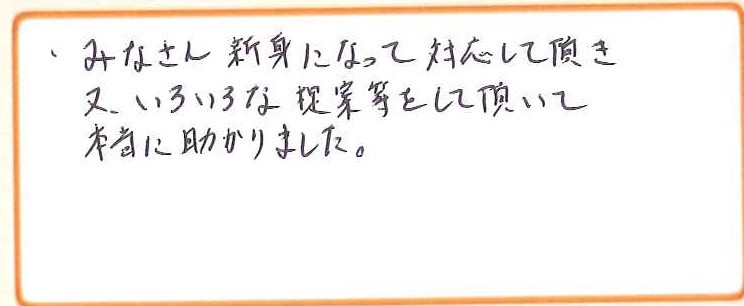 ・みなさん 新身になって 対応して頂き
又、いろいろな 提案等をして頂いて
本当に助かりました。